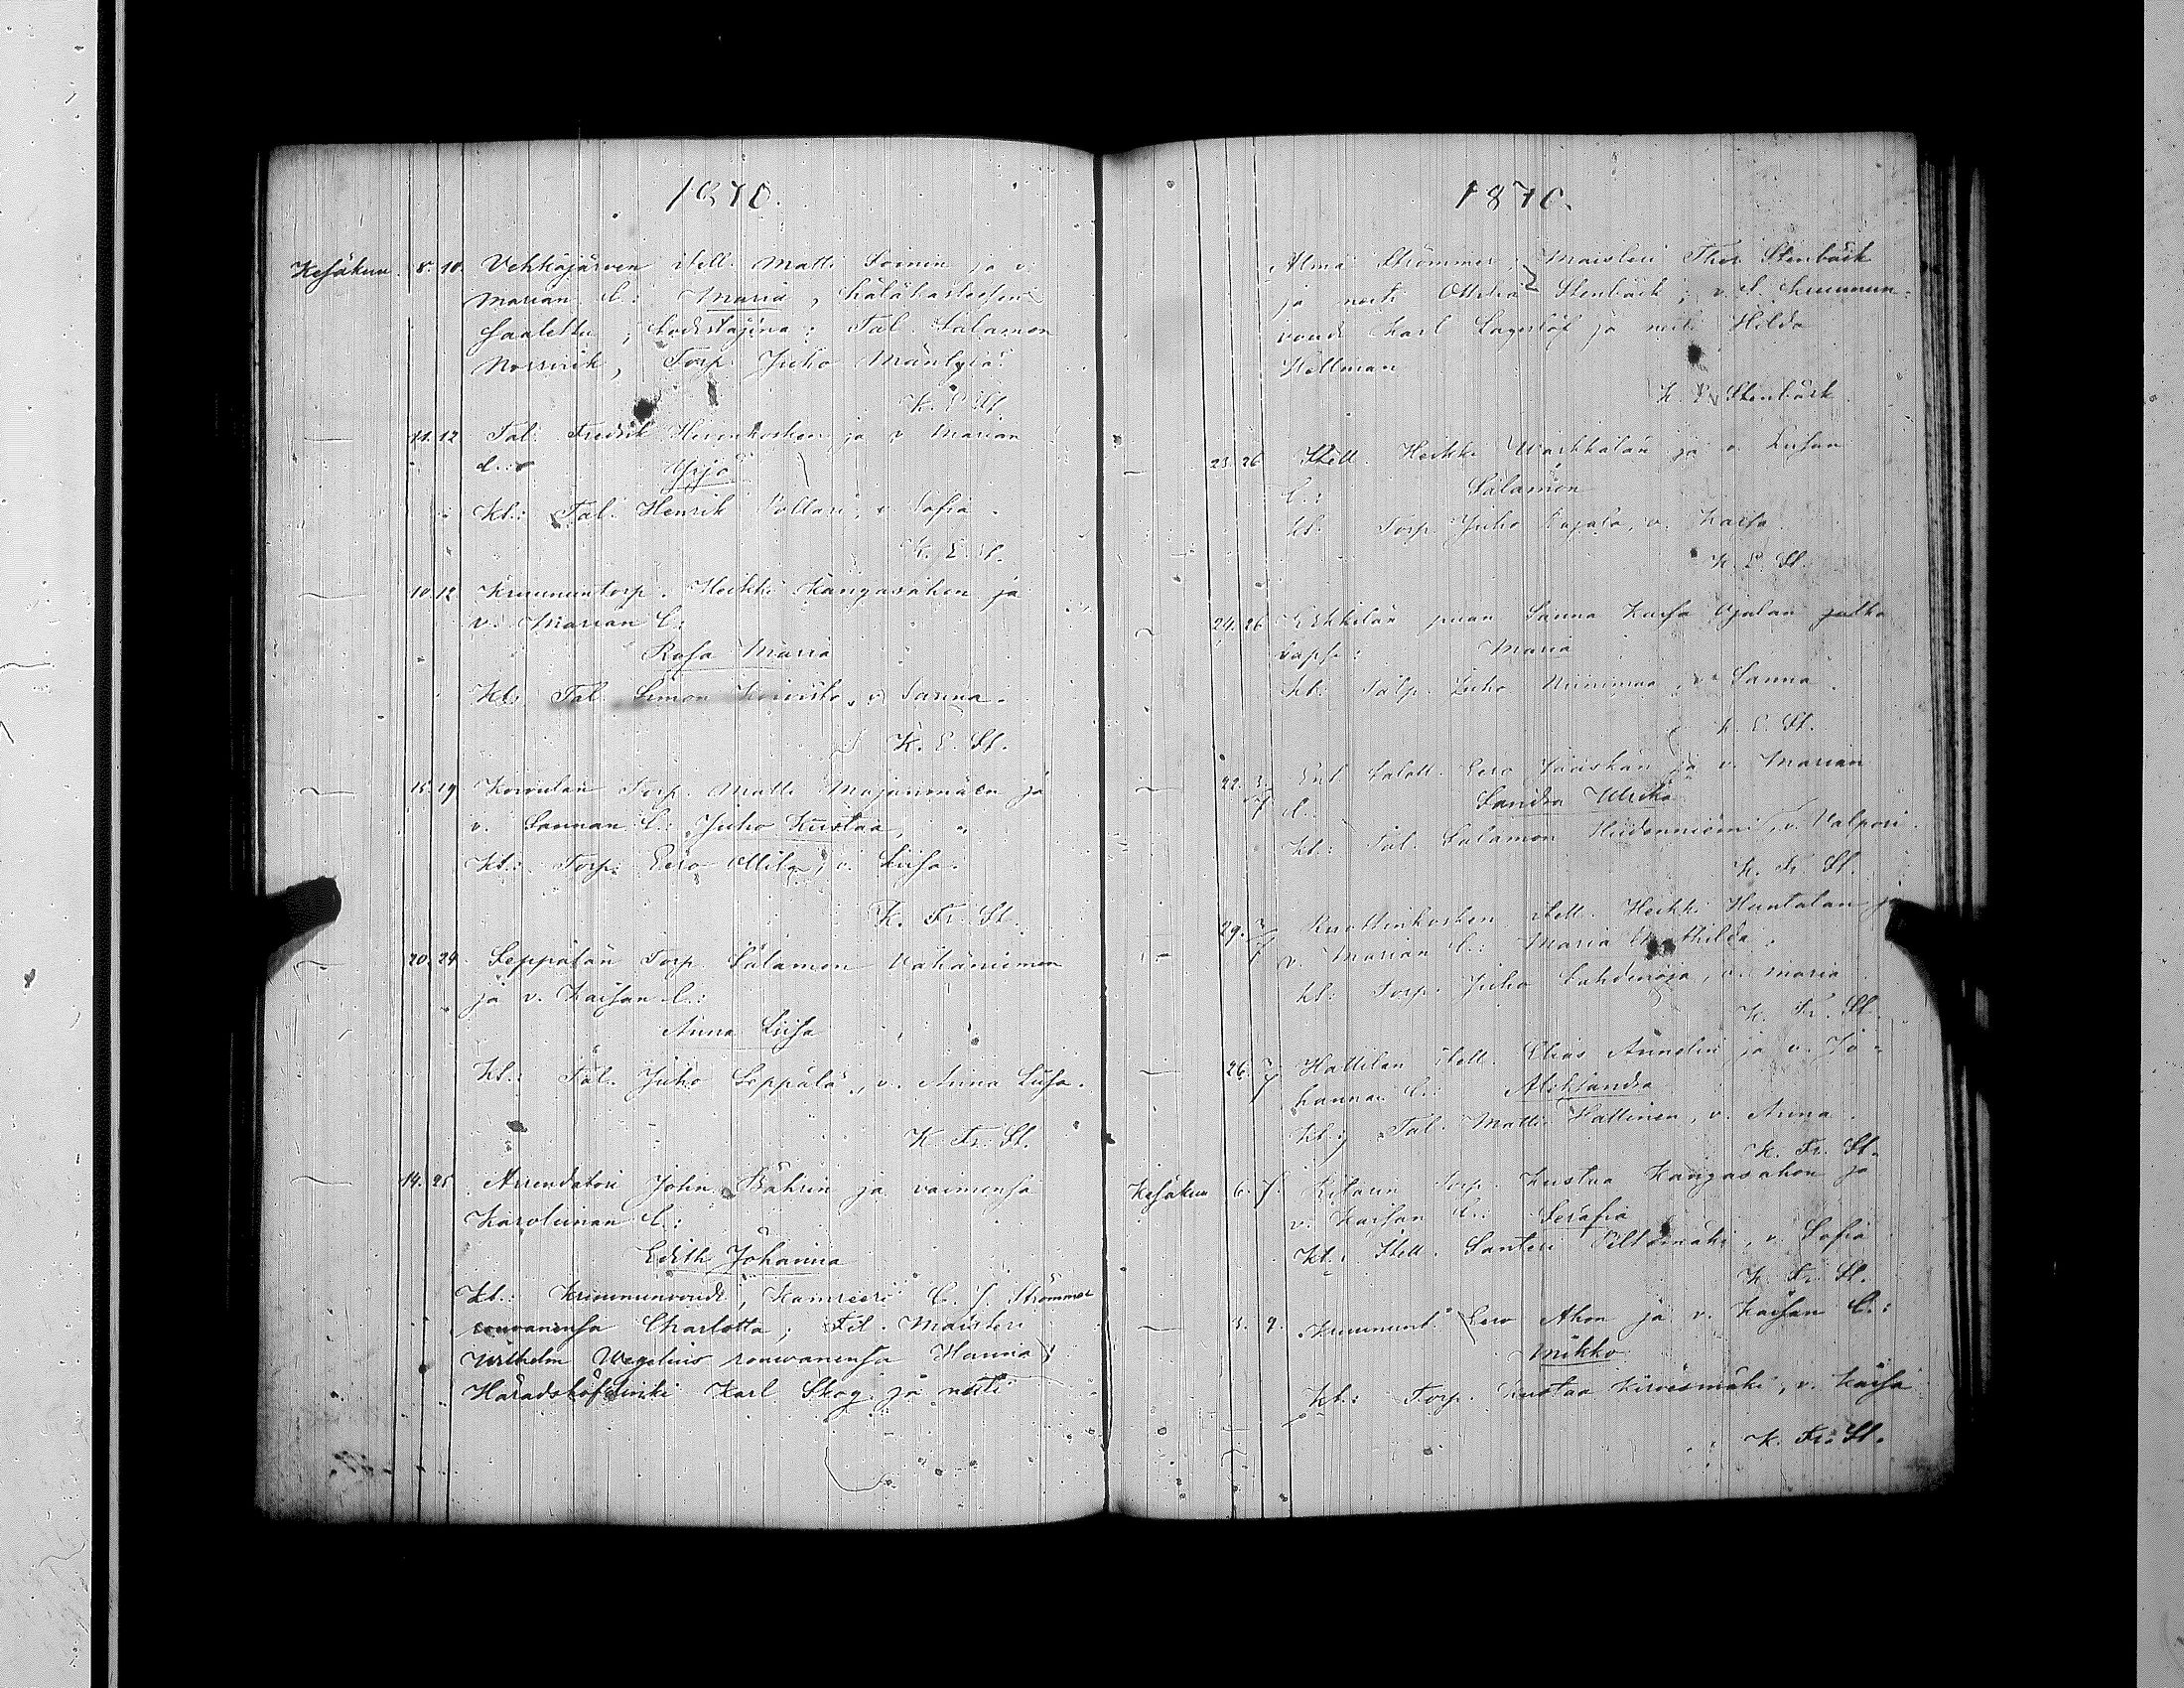 1870.
Kesäkuu. 8. 10. Vehkajärven itell. Matti Sornin ja v.
Marian l.: Maria, hätäkastettu
; todistajina: Tal. Salamon
Torp. Juho Mäntylä
K. E. St.
11. 12 Tal. Fredrik Hirvinkosken ja v. Marian
l.: Yrjö
Kt.: Tal. Henrik Pollari, v. Sofia.
K. E. St.
10. 12 Kruununtorp. Heikki Kangasahon ja
v. Marian l.:
Rosa Maria
Kt: Tal. Simon Koivisto, v. Sanna.
K. E. St.
15. 19 Koivulan Torp. Matti Majanmäen ja
v. Sannan l.: Juho Kustaa,
Kt.: Torp. Eero Ollila, v. Liisa.
K. Fr. St.
20. 24 Seppälän Torp. Salamon Vähäniemen
ja v. Kaisan l.:
Anna Liisa
Kt.: Tal. Juho Seppälä, v. Anna Liisa.
K. Fr. St.
14. 25 Arrendatori John Bährin ja vaimonsa
Karoliinan l.:
Edith Johanna
Kt.: Kruununvouti, Kamreeri C. J. Strömmer
rouvanensa Charlotta; Fil. Maisteri
Wilhelm Wegelius rouvanensa Hanna;
Häradshöfdinki Karl Skog ja neiti
1870.
Alma Strömmer; Maisteri Thor Stenbäck
ja neiti Ottilia Stenbäck; v.t. kruunun-
vouti Karl Lagerlöf ja neiti Hilda
Hellman
K. E. Stenbäck.
23. 26 Itell. Heikki Warkkalan ja v. Liisan
l.: Salamon
Kt. Torp. Juho Rajala, v. Kaisa.
K. E. St.
24. 26 Erkkilän piian Sanna Kaisa Ojalan
lapsi: Maria
Kt: Juho Niinimaa, v. Sanna.
K. E. St.
22. 3/7 Eero Jääskän ja v. Marian
l. Sandra Ulrika
Kt.: Tal. Salamon Hiidenniemi, v. Valpori.
K. Fr. St.
29. 3/7 Ruottinkosken itell. Heikki Huntalan ja
v. Marian l.: Maria Mathilda.
Kt: Torp. Juho Lahdenoja, v. Maria
K. Fr. St.
26. 3/7 Hattilan itell. Elias Annelin ja v. Jo-
hannan l.: Aleksandra
Kt.: Tal. Matti Hattinen, v. Anna.
K. Fr. St.
Kesäkuu 6. 7. Torp. Kustaa Kangasahon ja
v. Kaisan l.: Serafia
Kt.: Itell. Santeri Peltomäki, v. Sofia
K. Fr. St.
3. 9. Kruununt. Eero Ahon ja v. Kaisan l.:
Mikko
Kt.: Torp. Kustaa Kirvesmäki, v. Kaisa
K. Fr. St.